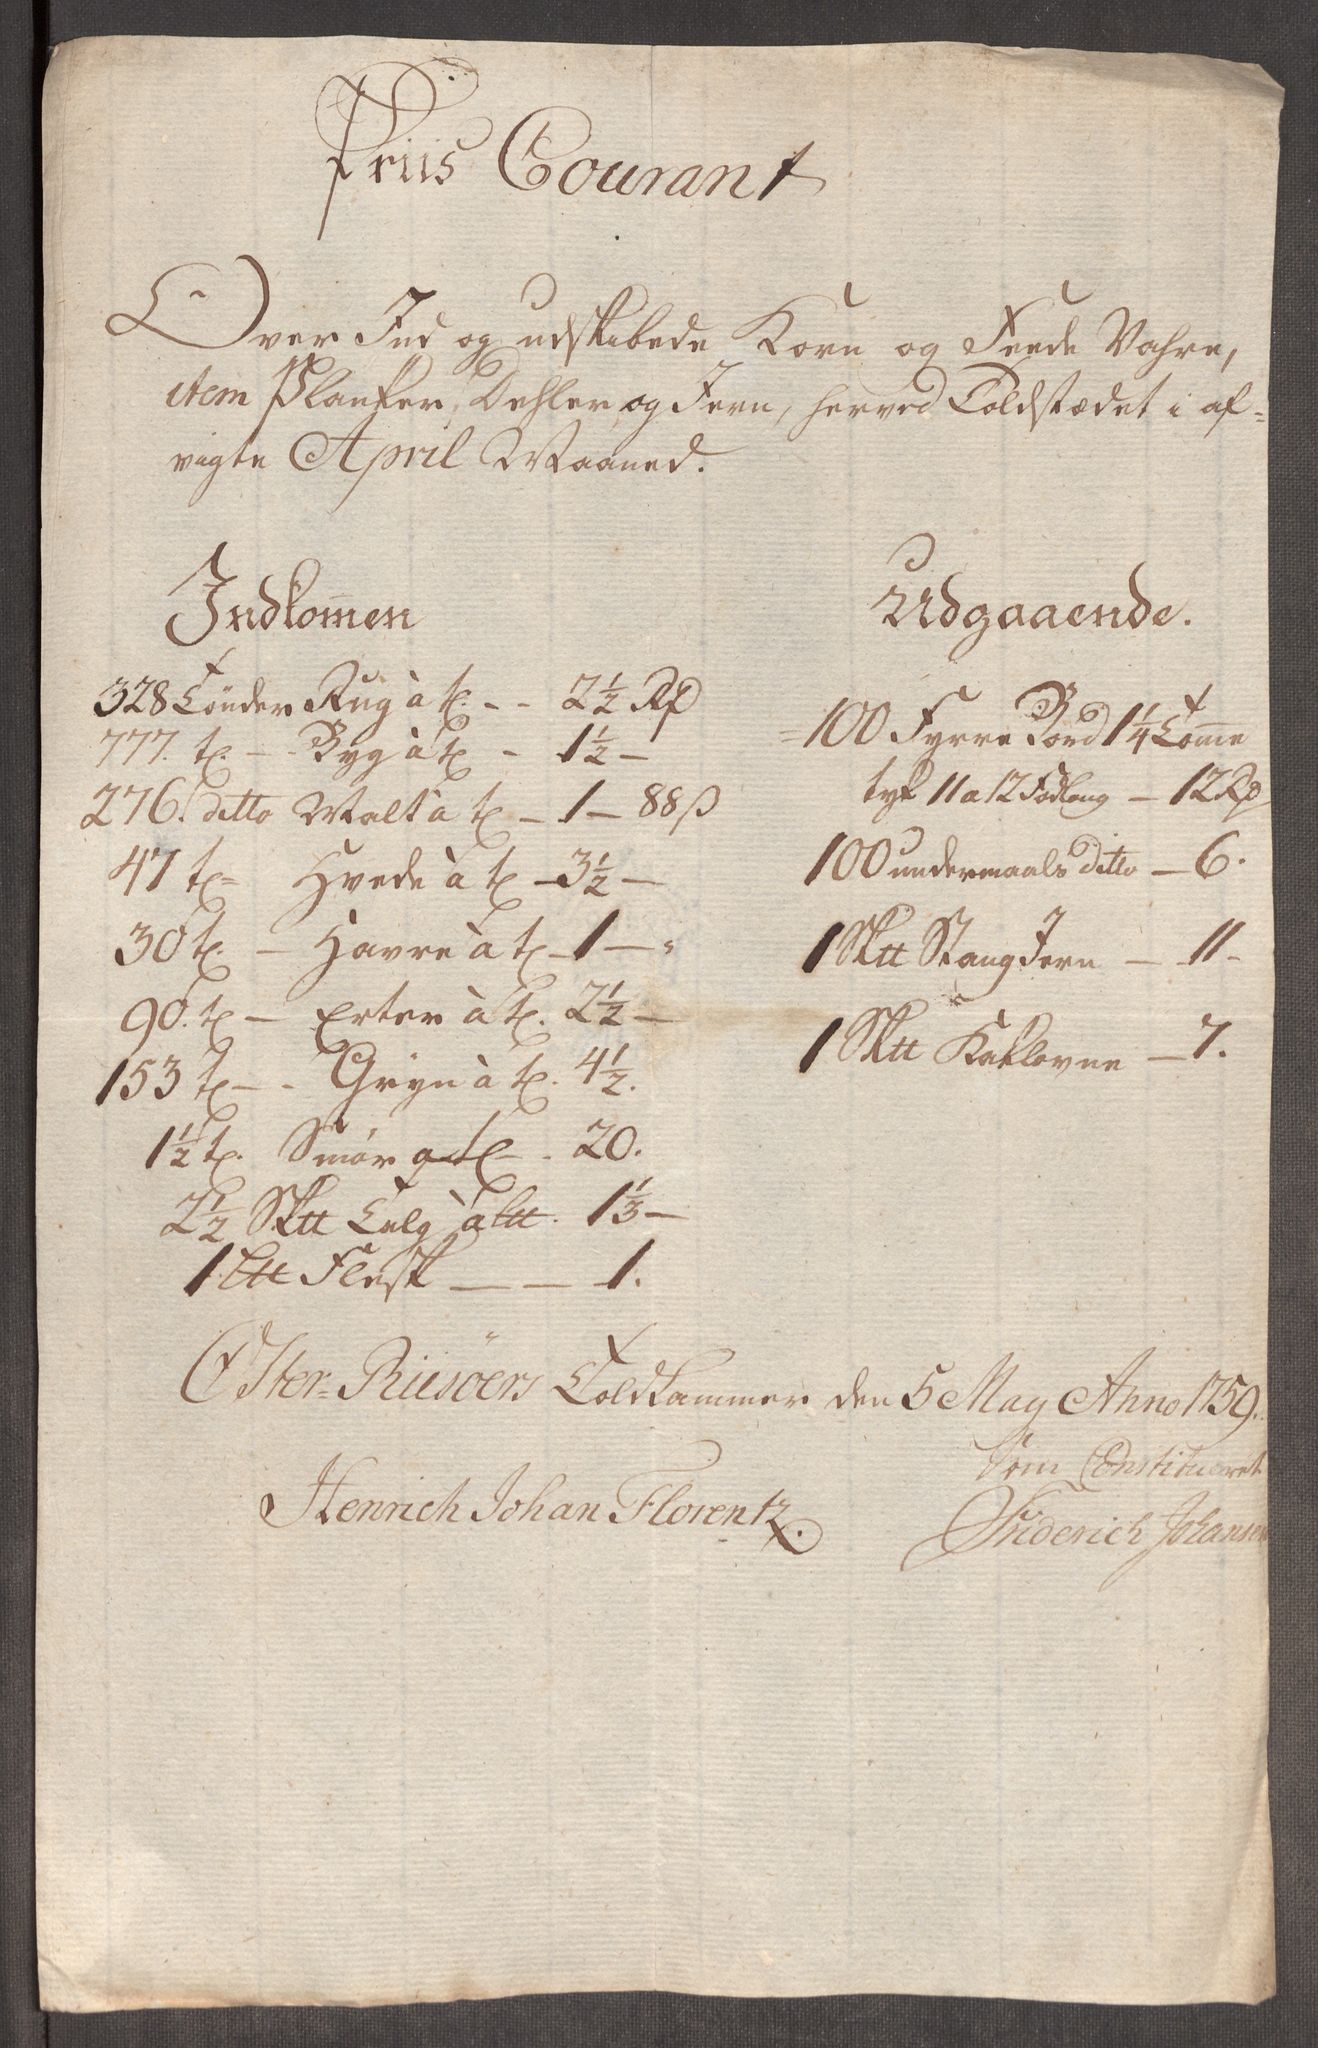 Priis Courant
Over Ind og udskibede Korn og Feede Vahre,
item Planker, Dehler, og Jern, herved Toldstædet i af-
vigte April Maaned.
Indkom̄en
328 Tönder Rug à t. - - 2 1/2 Rd
777. t. - Byg à t. - 1 1/2 -
276. ditto Malt à t. - 1 - 88 ß
47 t. Hvede à t. - 3 1/2 -
30 t. - Havre à t. - 1 - "
90. t. - Erter à t. 2 1/2 -
153 t. - - Gryn à t. 4 1/2.
1 1/2 t. Smör a t. - 20.
2 1/2 Sktt Talg à Ltt. 1 1/3 -
1 Ltt Flesk - - 1.
Udgaaende.
100 Fyrre Bord 1 1/4 Tom̄e
tyk 11 a 12 Fod lang - 12 Rd
100 undermaals ditto - 6.
1 Sktt Stang Jern - 11 -
1 Sktt Kaklovne - 7.
Öster-Riisöers Toldkammer den 5 May Anno 1759.
Som Constitueret
Henrich Johan Florentz.
Friderich Johansen